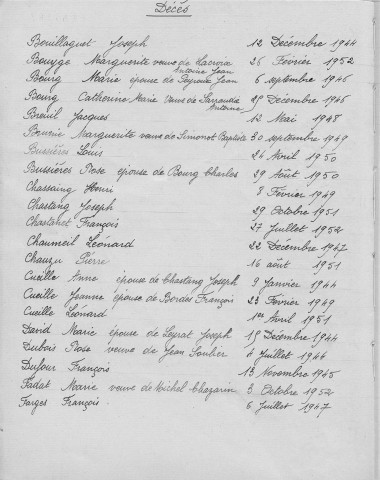 Décès
Bouillaguet Joseph 12 Décembre 1944
Bouyge Marguerite veuve de Lacroix Antoine Jean 26 Février 1952
Bourg Marie épouse de Jean 6 septembre 1946
Bourg Catherine Marie veuve de Antoine 29 Décembre 1946
Breuil Jacques 12 Mai 1948
Bounie Marguerite veuve de Simonet Baptiste 30 septembre 1949
Bussières Louis 24 Avril 1950
Bussières Rose épouse de Bourg Charles 29 Août 1950
Chassaing Henri 8 Février 1949
Chastang Joseph 29 Octobre 1951
Chastanet François 27 Juillet 1952
Chaumeil Léonard 22 Décembre 1947
Chauzu Pierre 16 août 1951
Cueille Anne épouse de Chastang Joseph 9 Janvier 1944
Cueille Jeanne épouse de Bordes François 23 Février 1949
Cueille Léonard 1er Avril 1951
David Marie épouse de Leyrat Joseph 15 Décembre 1944
Dubois Rose veuve de Jean Soulier 4 Juillet 1944
Dufour François 13 Novembre 1945
Fadat Marie veuve de Michel Chezarin 3 Octobre 1952
Farges François. 6 Juillet 1947